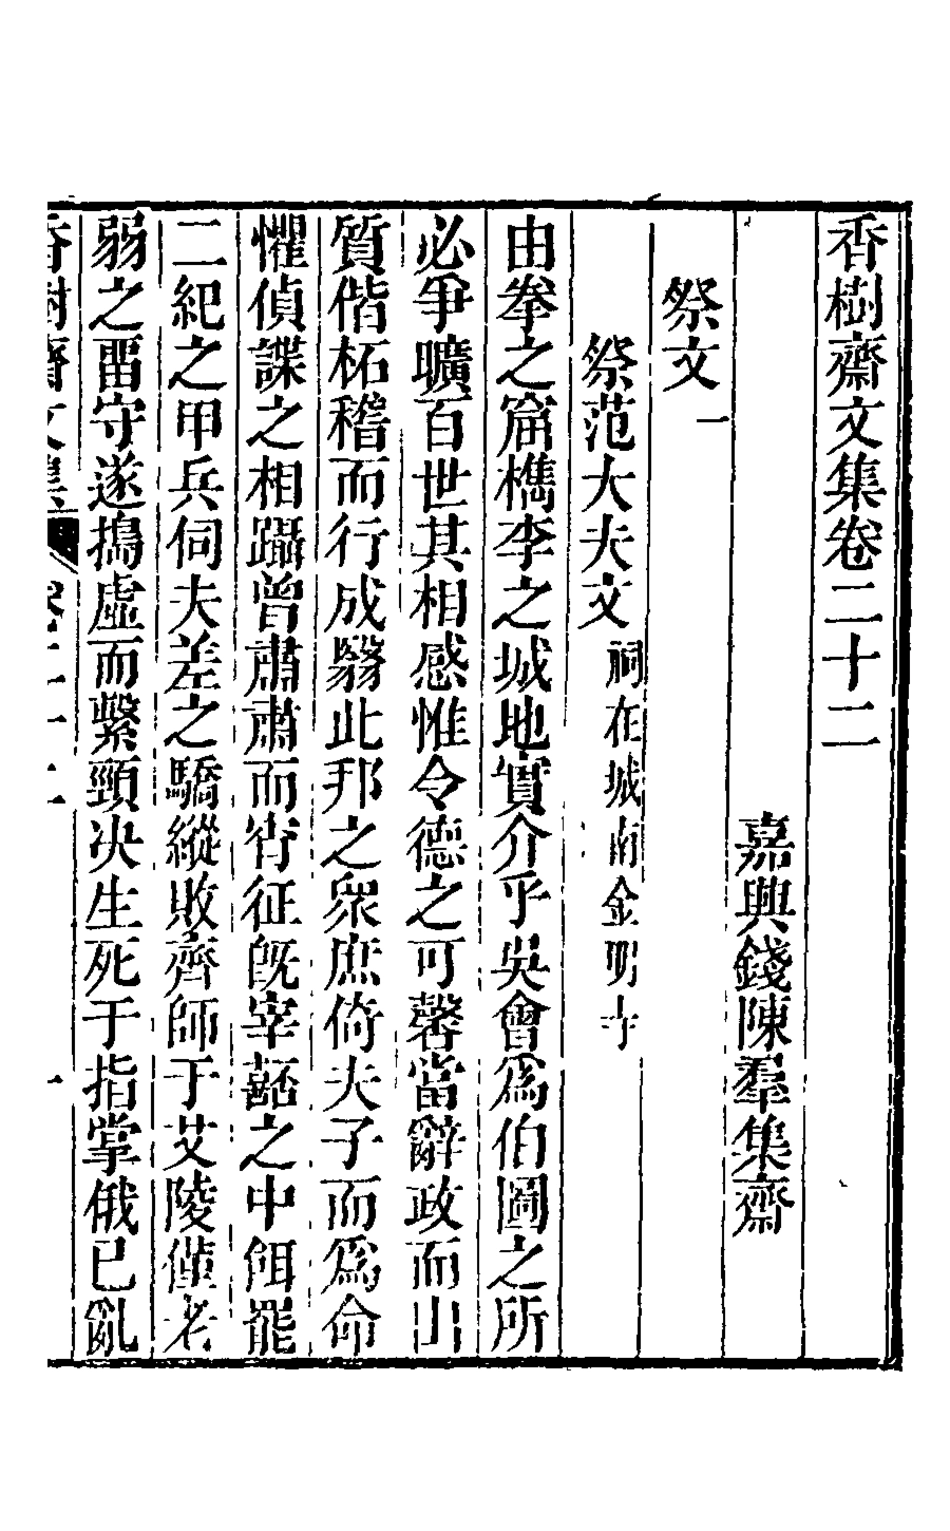 香樹齋文集卷二十二
嘉興錢陳羣集齋
祭文一
祭范大夫文祠在城南金明寺
由拳之窟檇李之城地實介乎吳會爲伯圖之所
必爭曠百世其相感惟令德之可馨當辭政而出
質偕柘稽而行成繄此邦之衆庶倚夫子而爲命
懼偵諜之相躡曾肅肅而宵征旣宰嚭之中餌罷
二紀之甲兵伺夫差之驕縱敗齊師于艾陵僅老
弱之畱守遂搗虛而繫頸決生死于指掌俄已亂
香樹齋文集 卷二十二 一